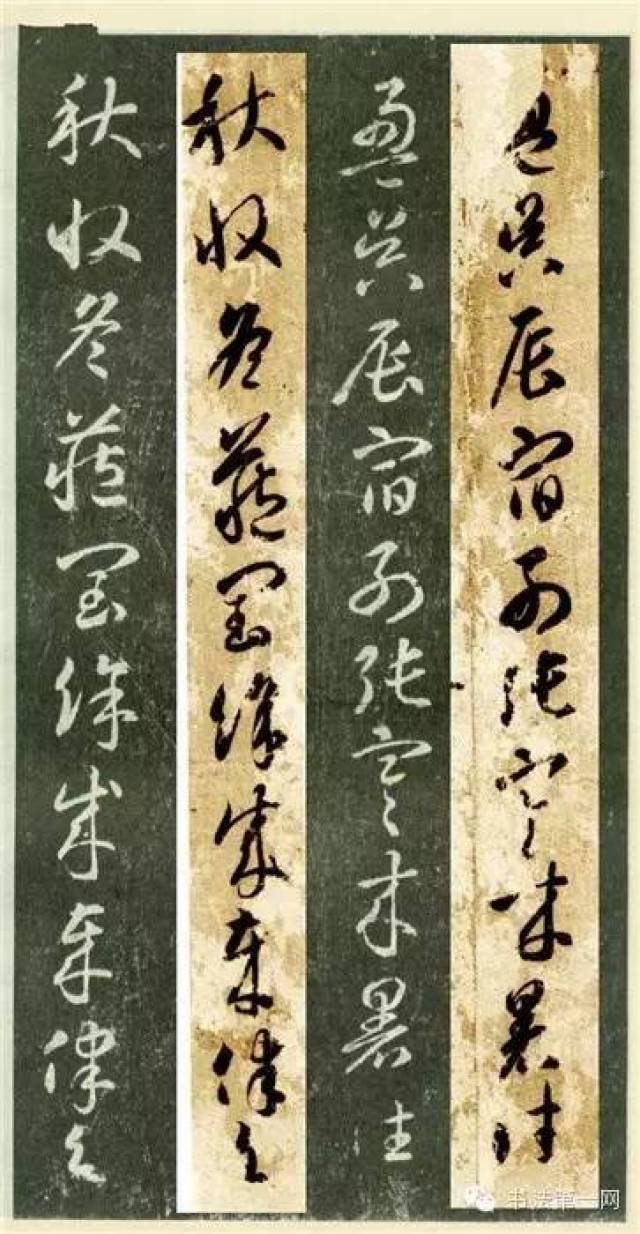 盈昃辰宿列張寒來暑往
盈昃辰宿列張寒來暑往
秋收冬藏閏餘成歲律召
秋收冬藏閏餘成歲律召
书法第一网